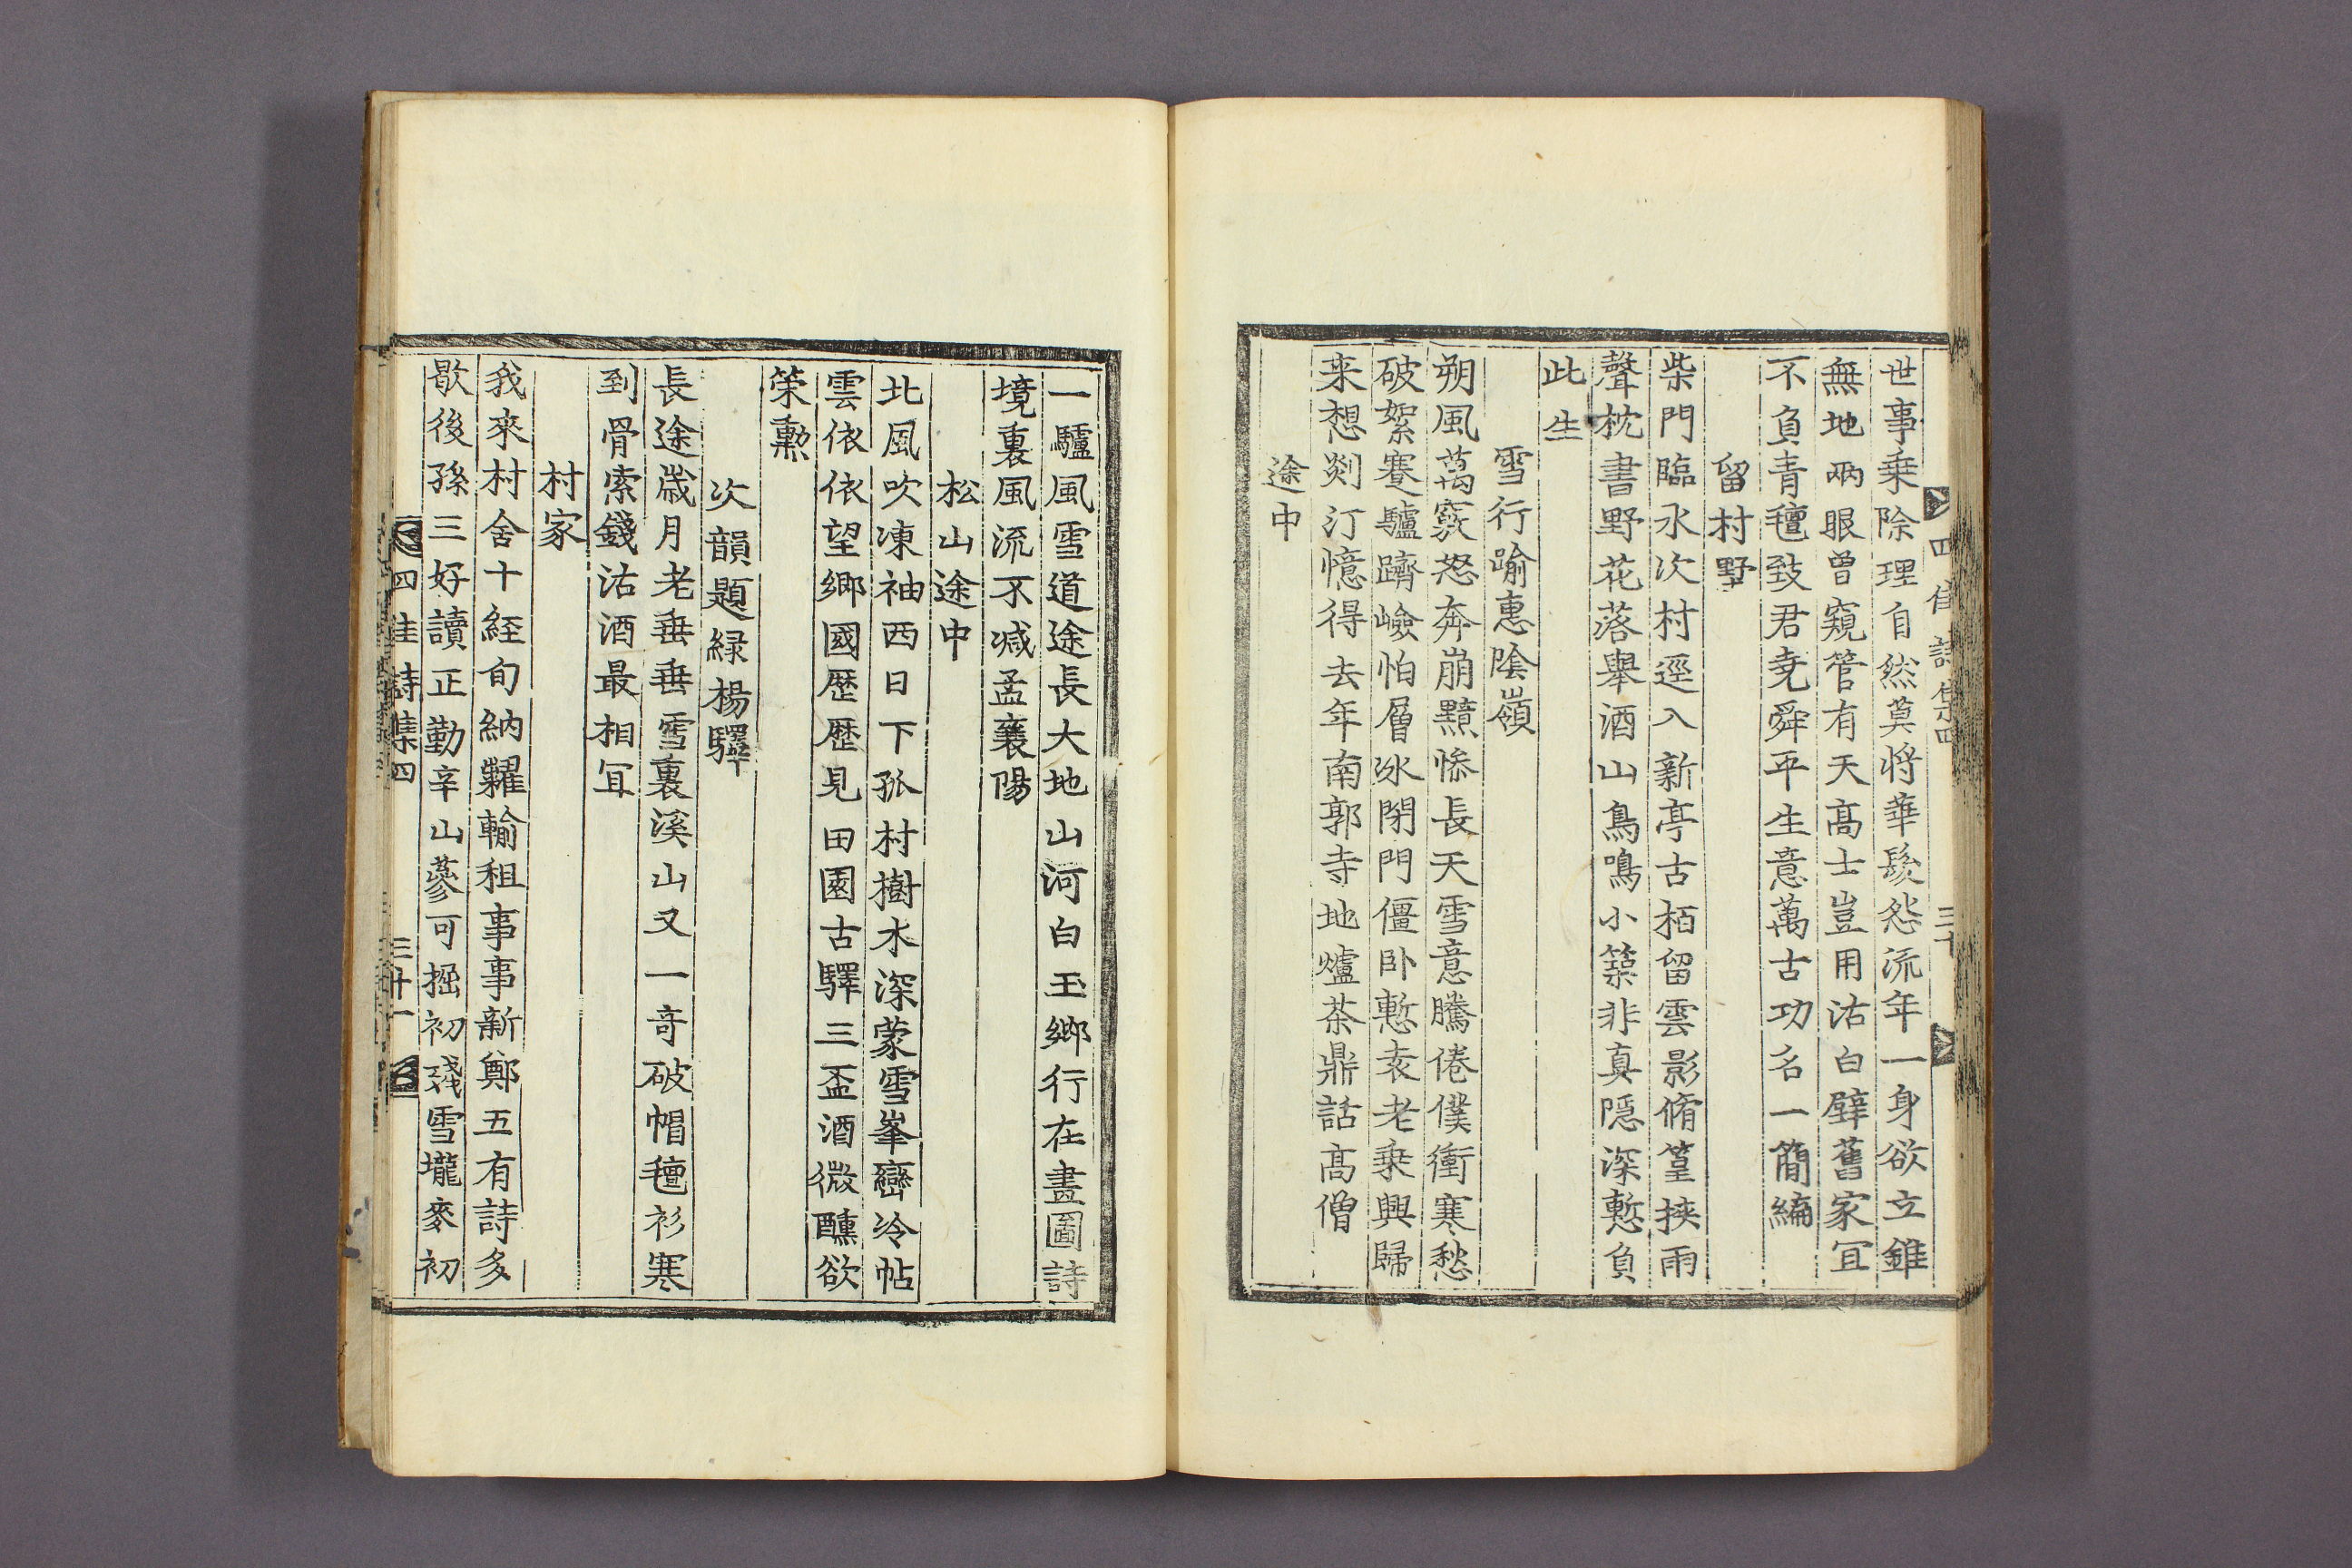 世事乗除理自然莫將華髮怨流年一身欲立錐
無地兩眼曾窺管有天高士豈用沽白璧舊家冝
不負青氊致君尭舜平生意萬古功名一簡編
留村墅
柴門臨水次村逕入新亭古栢留雲影脩篁挾雨
聲枕書野花落舉酒山鳥鳴小築非真隠深慙負
此生
雪行踰惠陰嶺
朔風萬竅怒奔崩黯惨長天雪意騰倦僕衝寒愁
破絮蹇驢躋嶮怕層氷閉門僵卧慙袁老乗興歸
来想剡汀憶得去年南郭寺地爐茶鼎話高僧
途中
一驢風雪道途長大地山河白玉鄉行在畫圖詩
境裏風流不减孟襄陽
松山途中
北風吹凍袖西日下孤村樹木深蒙雪峯巒冷帖
雲依依望鄉國歴歴見田園古驛三盃酒微醺欲
策勲
次韻題緑楊驛
長途歲月老垂垂雪裏溪山又一竒破帽氊衫寒
到骨索錢沽酒最相冝
村家
我來村舍十經旬納糶輸租事事新鄭五有詩多
歇後孫三好讀正勤辛山蔘可掘初殘雪壠麥初
四佳詩集四
三十一